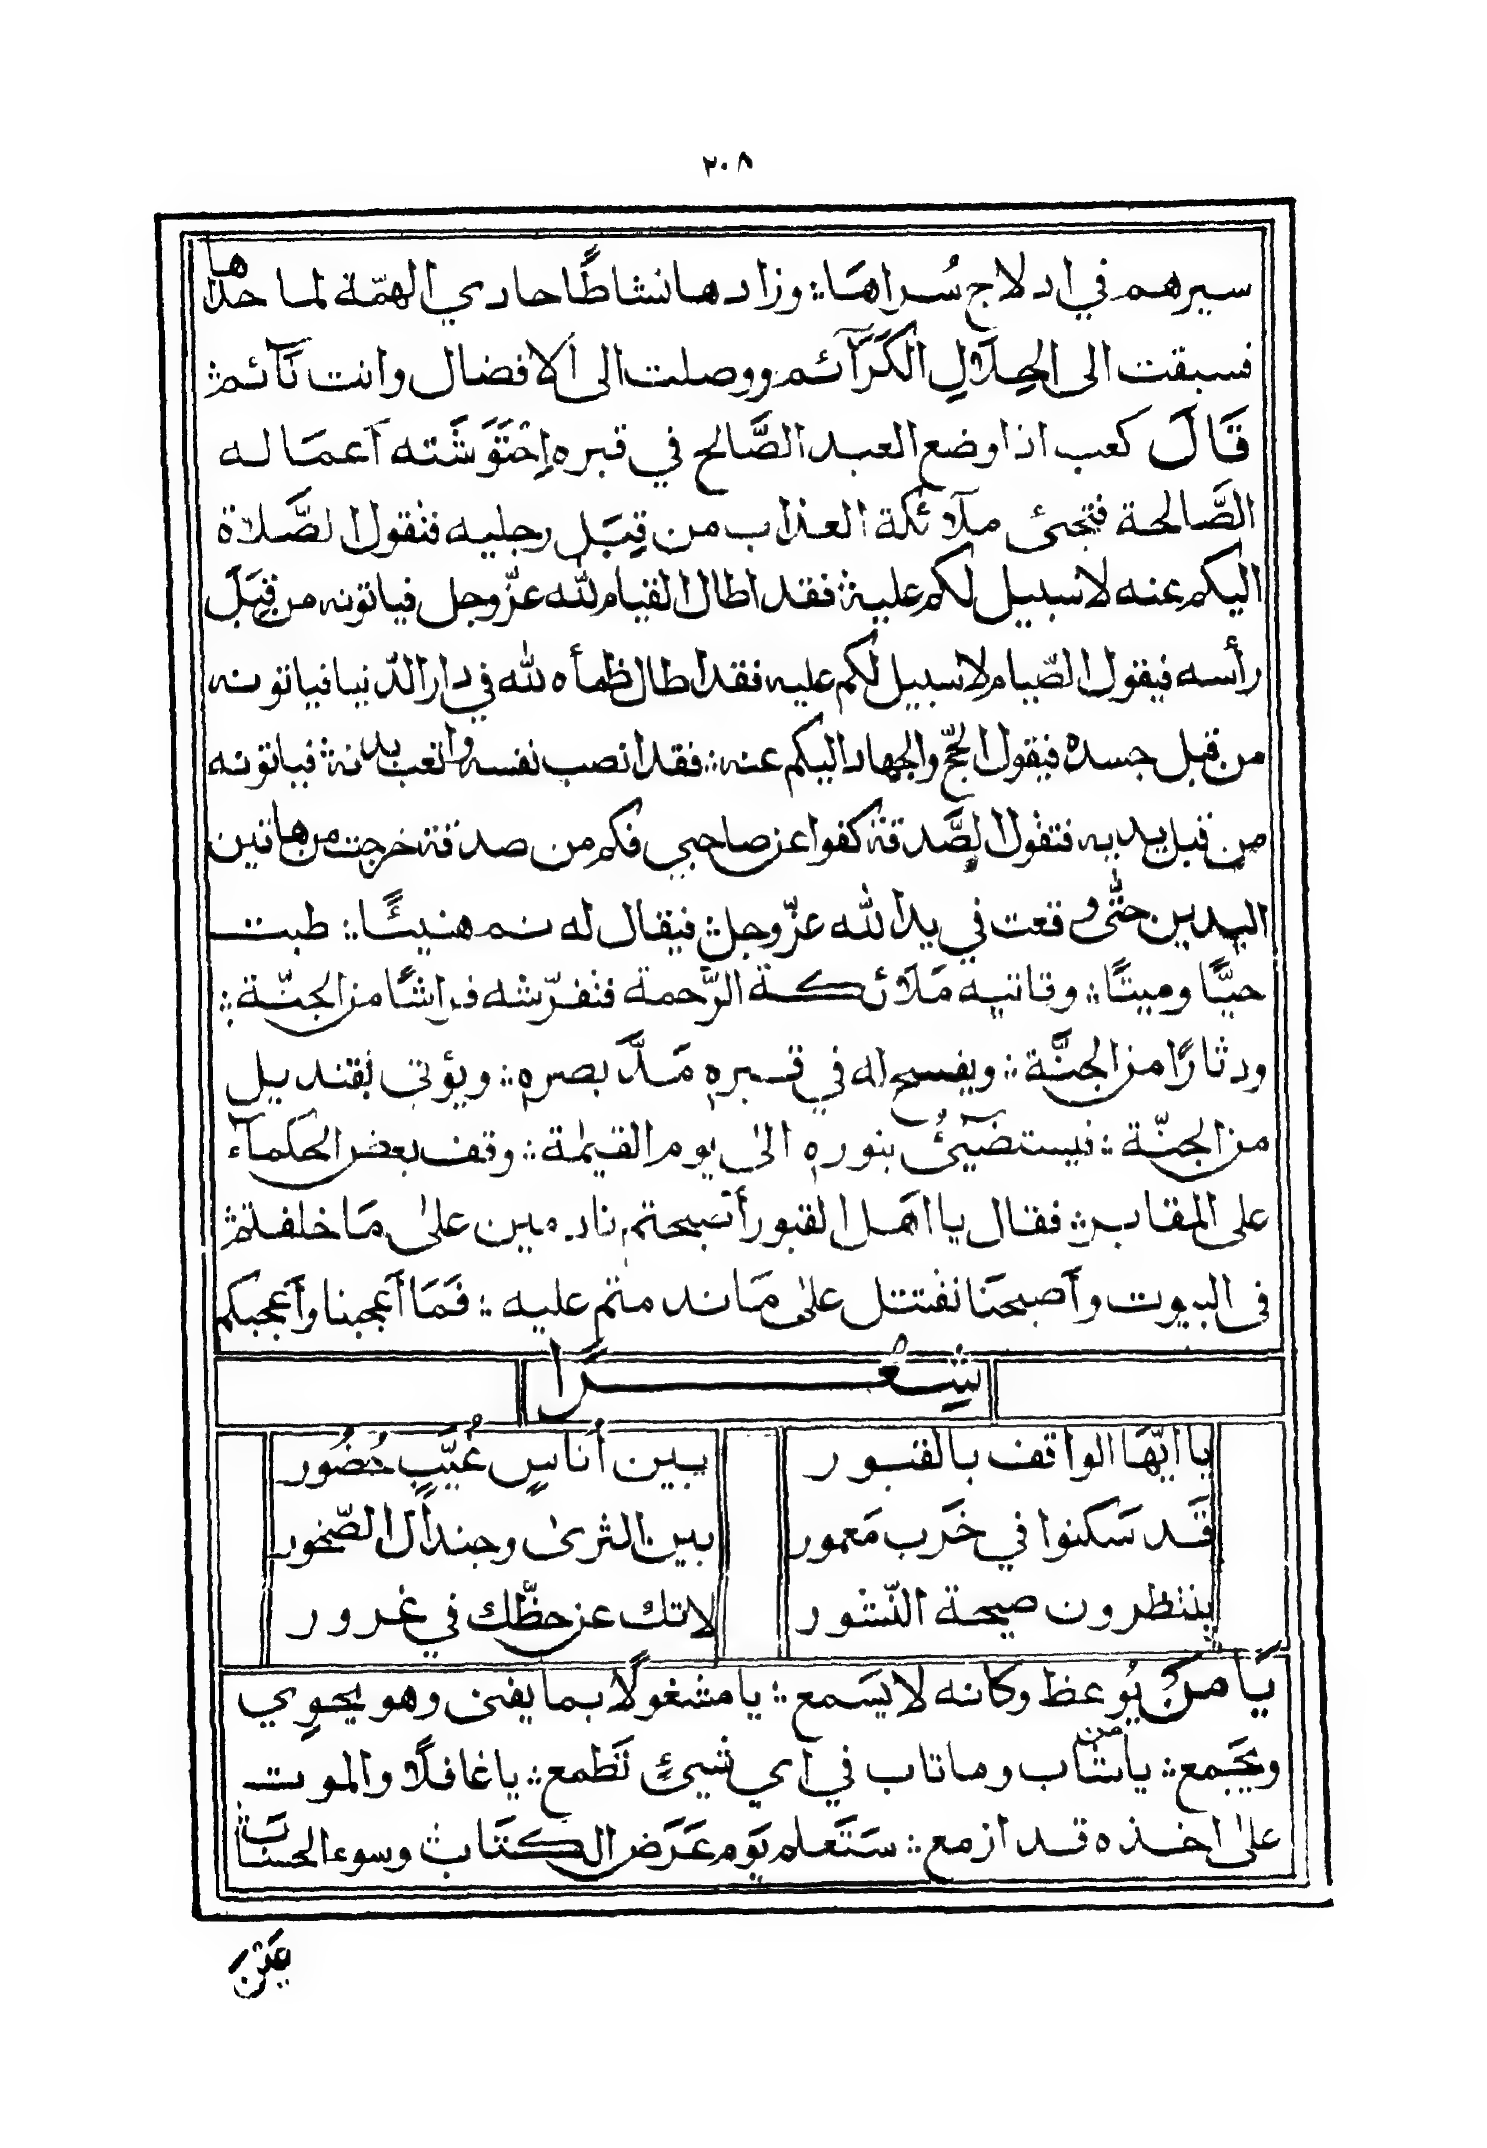 ٢٠٨
سيرهم في ادلاج سُراهَا ؞ وزادها نشاطًا حادي الهمّة لما حداها
فسبقت الى الحِلَالِ الكَرَآئم ووصلت الى الافضال وانت نَآئم ؞
قَالَ كعب اذا وضع العبد الصَّالح في قبره اِحْتَوَشَته آعمَاله
الصَّالحة فتجئ ملآئكة العذاب من قِبَل رجليه فتقول الصَّلاة
اليكم عنه لا سبيل لكم عليه ؞ فقد اطال القيام لله عزّ وجل فياتونه من قِبَل
رأسه فيقول الصّيام لا سبيل لكم عليه فقد اطال ظمأه لله في دار الدّنيا فياتونه
من قبل جسده فيقول الحجّ والجهاد اليكم عنه ؞ فقد انصب نفسه واتعب بدنه ؞ فياتونه
من قبل يديه فتقول الصَّدقة كفوا عن صاحبي فكم من صدقة خرجت من هاتين
اليدين حتّى وقعت في يد الله عزّ وجل ؞ فيقال له نم هنيئًا ؞ طبت
حيًّا وميتًا ؞ وقاتيه مَلَائكة الرَّحمة فتفرّشه فراشًا من الجنّة ؞
ودثارًا من الجنَّة ؞ ويفسح له في قبره مَدَّ بصره ؞ ويؤتى بقنديل
من الجنّة ؞ فيستضَيئُ بنوره الىٰ يوم القيٰمة ؞ وقف بعض الحكمآء
على المقابر ؞ فقال يا اهَل القبور أصبحتم نادمين علىٰ مَا خلفتم
في البيوت وأصبحنَا نقتتل علىٰ مَا ندمتم عليه ؞ فَمَا أعجبنا وأعجبكم
شِعْرًا
يا ايّهَا الواقف بالقبور بين أناسٍ غُيَّبٍ حُضُور
قَد سَكنوا في خَرَب مَعمور بين الثرىٰ وجندل الصّخور
ينتظرون صيحة النّشور لاتك عن حظّك في غرور
يَا مَن يُوعظ وكانه لا يَسَمع ؞ يا مشغولًا بما يفنى وهو يحوي
ويَجَمع ؞ يا من شاب وما تاب في اي شيئٍ تَطمع ؞ يا غافلًا والموت
علىٰ اخذه قد ازمع ؞ سَتَعلم يَوم عَرَض الكتَاب وسوء الحسَاب